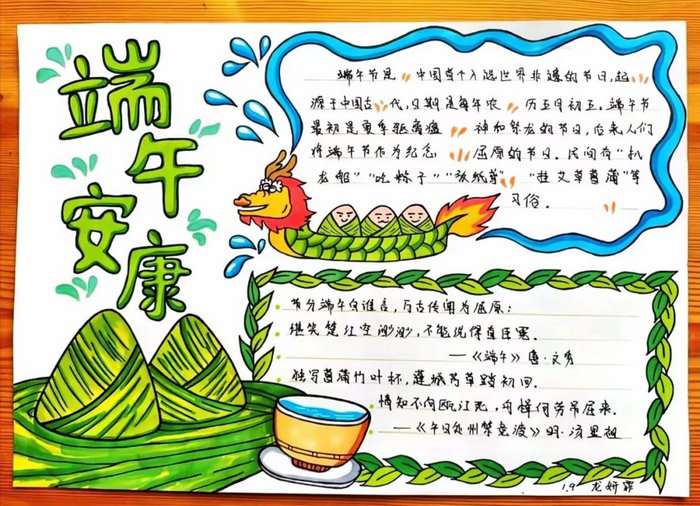 端午安康
端午节是中国首个入选世界非遗的节日,起
源于中国古代,日期是每年农历五月初五,端午节
最初是夏季驱离瘟神和祭龙的节日,后来人们
将端午节作为纪念屈原的节日.民间有“扒
龙船”“吃粽子”“放纸鸢”“挂艾草菖蒲”等
习俗。
节分端午自谁言,万古传闻为屈原;
堪笑楚江空渺渺,不能洗得直臣冤.
—《端午》唐·文秀
独写菖蒲竹叶杯,蓬城芳草踏初回.
情知不向瓯江死,舟楫何劳吊屈来.
—《午日处州禁竞渡》明·汤显祖
1.9 龙妍霏